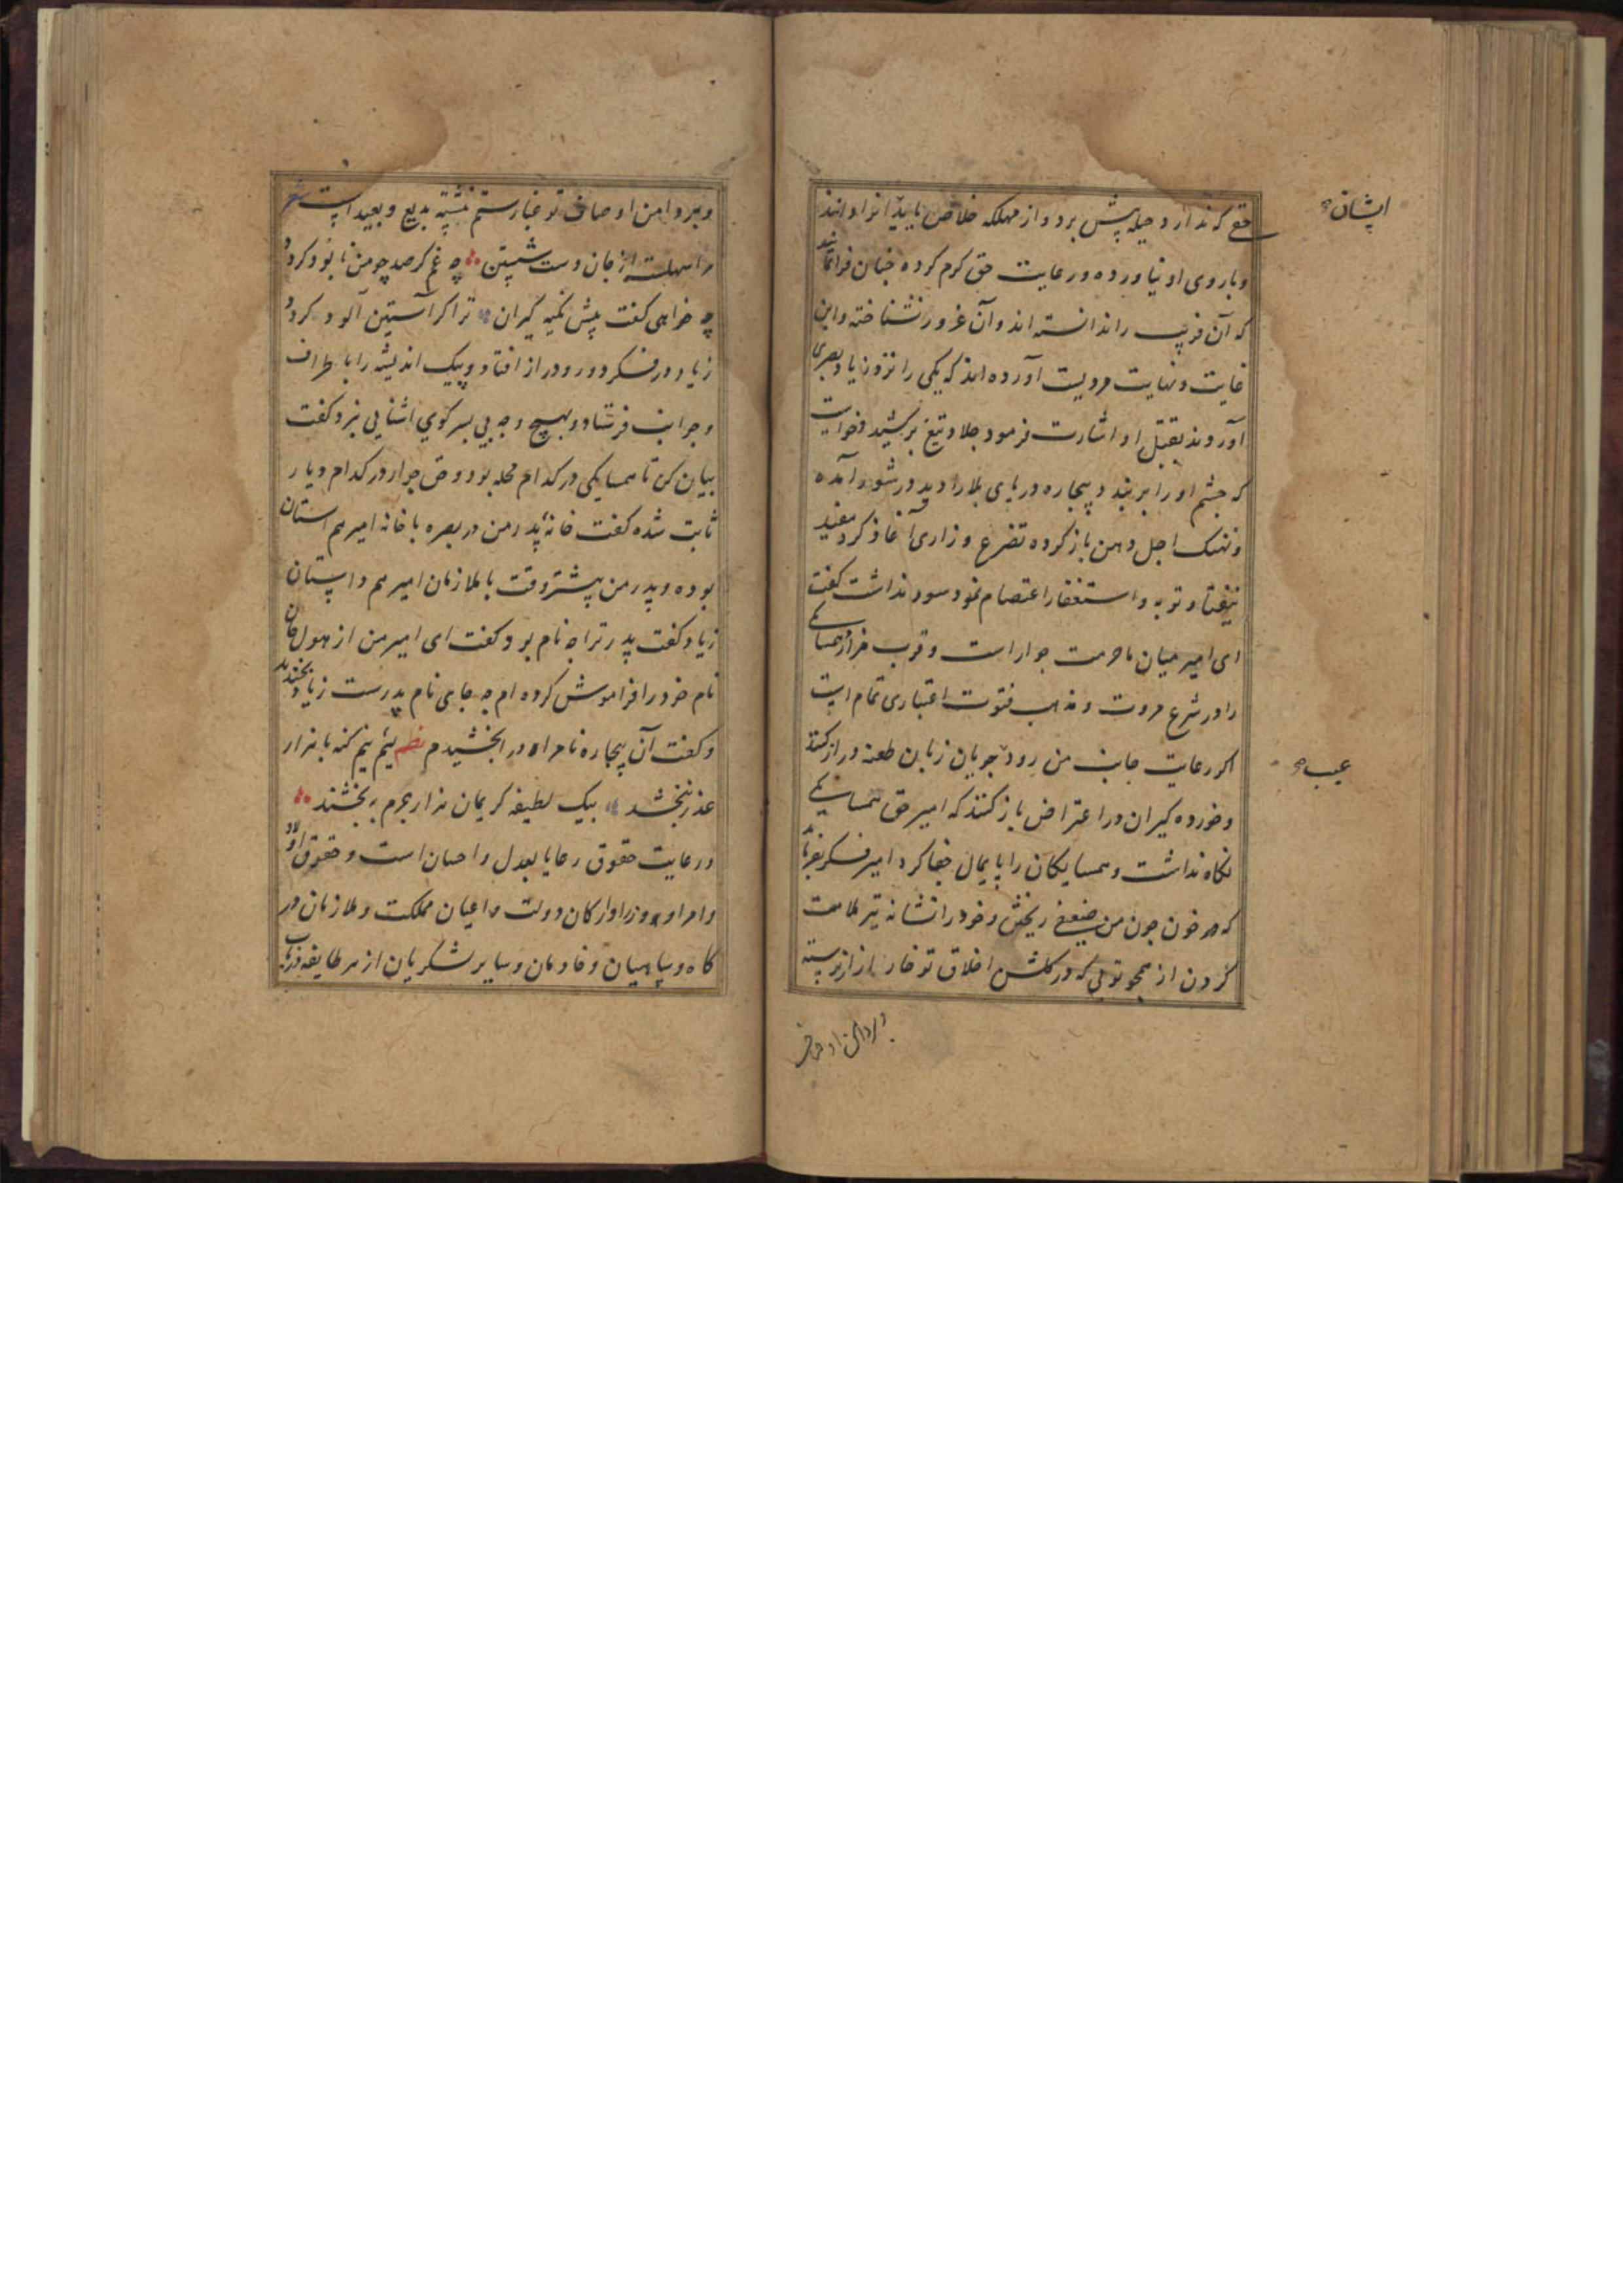 حقی که ندارد و حیله پیش برد و از مهلکه خلاص یابد انرا دانند
ایشان
و با روی او نیاورده و رعایت حق کرم کرده چنان فرا نمایند
که آن فریب را ندانسته اند و آن غرور نشناخته و این
غایت و نهایت مرویست آورده اند که یکی را نزد زیاد بصری
آوردند بقتل او اشارت فرمود جلاد تیغ برکشید و خواست
که چشم او را بر بندد بیچاره دریای بلا را دید در شور آمده
و نهنک اجل دهن باز کرده تضرع و زاری آغاز کرد مفید
نیفتاد و توبه و استغفار اعتصام نمود سود نداشت گفت
ای امیر میان ما حرمت جوار است و قرب مزار همسایکی
را در شرع مروت و مذهب فتوت اعتباری تمام است
اکر رعایت جانب من رود جویان زبان طعنه دراز کنند
عیب
و خورده کیران در اعتراض باز کنند که امیر حق همسایکی
نکاه نداشت و همسایکان را پایمال جفا کرد امیر فکر بفرما
که مر خون چون من ضعیفی ریختن و خود را نشانه تیر ملامت
کردن از همچو تویی که در کلشن اخلاق تو خار ازار نرسته
و بر دامن اوصاف
و بر دامن اوصاف تو غبار ستم ننشسته بدیع و بعید است شعر
مرا سهلست از جان دست شستن چه غم کر صد چو من نابود کردد
چه خواهی کفت پیش نکته کیران ترا کر آستین آلود کردد
زیاد در فکر دور و دراز افتاد و پیک اندیشه را باطراف
و جوانب فرستاد و بهیچ وجه پی بسر کوی اشنایی نبرد کفت
بیان کن تا همسایکی در کدام محله بود و حق جوار در کدام دیار
ثابت شده کفت خانه پدر من در بصره با خانه امیر هم استان
بوده و پدر من پیشتر وقت با ملازمان امیر هم داستان
زیاد کفت پدر ترا چه نام بود کفت ای امیر من از هول جان
نام خود را فراموش کرده ام چه جای نام پدرست زیاد بخندید
و کفت آن بیچاره نامراد را بخشیدم نظم لئیم نیم کنه با هزار
عذر نبخشد بیک لطیفه کریمان هزار جرم ببخشند
و رعایت حقوق رعایا بعدل و احسان است و حقوق اولاد
و امرا و وزرا و ارکان دولت و اعیان مملکت و ملازمان در
کاه و سپاهیان و خادمان و سایر لشکریان از هر طایفه فراید